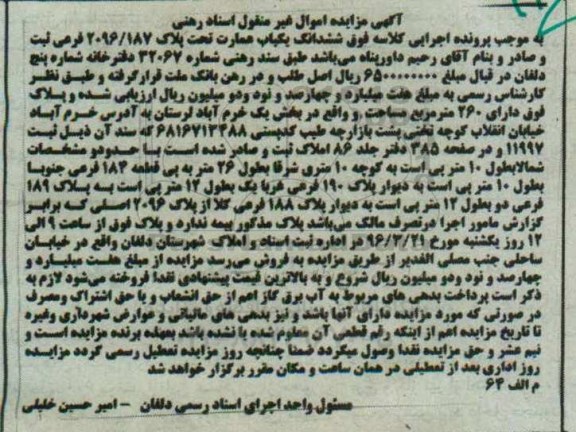 آگهی مزایده اموال غیر منقول اسناد رهنی
به موجب پرونده اجرایی کلاسه فوق ششدانگ یکباب عمارت تحت پلاک ۲۰۹۶/۱۸۷ فرعی ثبت
و صادر و بنام آقای رحیم داورپناه می‌باشد طبق سند رهنی شماره ۳۲۰۶۷ دفترخانه شماره پنج
دلفان در قبال مبلغ ۶۵۰۰۰۰۰۰۰۰ ریال اصل طلب و در رهن بانک ملت قرارگرفته و طبق نظر
کارشناس رسمی به مبلغ هفت میلیارد و چهارصد و نود ودو میلیون ریال ارزیابی شده و پلاک
فوق دارای ۲۶۰ مترمربع مساحت و واقع در بخش یک خرم آباد لرستان به آدرس خرم آباد
خیابان انقلاب کوچه تختی پشت بازارچه طیب کدپستی ۶۸۱۶۷۱۳۴۸۸ که سند آن ذیل ثبت
۱۱۹۹۷ و در صفحه ۳۸۵ دفتر جلد ۸۶ املاک ثبت و صادر شده است با حدودو مشخصات
شمالابطول ۱۰ متر پی است به کوچه ۱۰ متری شرقا بطول ۲۶ متر به پی قطعه ۱۸۴ فرعی جنوبا
بطول ۱۰ متر پی است به دیوار پلاک ۱۹۰ فرعی غربا یک بطول ۱۴ متر پی است به پلاک ۱۸۹
فرعی دو بطول ۱۲ متر پی است به دیوار پلاک ۱۸۸ فرعی کلا از پلاک ۲۰۹۶ اصلی که برابر
گزارش مامور اجرا درتصرف مالک می‌باشد پلاک مذکور بیمه ندارد و پلاک فوق از ساعت ۹ الی
۱۲ روز یکشنبه مورخ ۹۶/۳/۲۱ در اداره ثبت اسناد و املاک شهرستان دلفان واقع در خیابان
ساحلی جنب مصلی الغدیر از طریق مزایده به فروش می‌رسد مزایده از مبلغ هفت میلیارد و
چهارصد و نود ودو میلیون ریال شروع و به بالاترین قیمت پیشنهادی نقدا فروخته می‌شود لازم به
ذکر است پرداخت بدهی های مربوط به آب برق گاز اعم از حق انشعاب و یا حق اشتراک ومصرف
در صورتی که مورد مزایده دارای آنها باشد و نیز بدهی های مالیاتی و عوارض شهرداری وغیره
تا تاریخ مزایده اعم از اینکه رقم قطعی آن معلوم شده یا نشده باشد بعهده برنده مزایده است و
نیم عشر و حق مزایده نقدا وصول میگردد ضمنا چنانچه روز مزایده تعطیل رسمی گردد مزایده
روز اداری بعد از تعطیلی در همان ساعت و مکان مقرر برگزار خواهد شد
م الف ۶۴
مسئول واحد اجرای اسناد رسمی دلفان - امیر حسین خلیلی